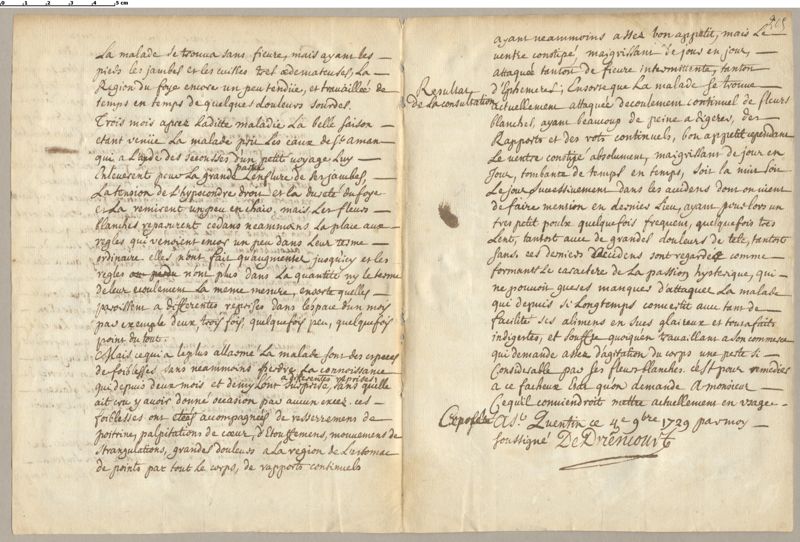 0 1 2 3 4 5 cm
La malade se trouva sans fievre, mais ayant les
pieds les jambes et les cuisses tres œdemateuses, La
Region du foye encore un peu tendüe, et travaillée de
temps en temps de quelques douleurs sourdes.
Trois mois apres Laditte maladie La belle saison
etant venüe La malade prit Les eaux de St aman
qui a Laide des secousses d'un petit voyage Luy
enleverent pour La grande partie Lenflure de ses jambes,
La tension de Lhypocondre droit et la dureté du foye
et La remirent un peu en chair, mais Les fleurs
blanches reparurent cedans neammoins La place aux
regles qui venoient encor un peu dans Leur terme
ordinaire elles n'ont fait qu'augmenter jusqu'icy et les
regles n'ont plus dans La quantité ny le terme
de leur ecoulement La meme mesure, ensorte quelles
paroissent a differentes reprises dans L'espace d'un mois
par exemple deux trois fois, quelquefois peu, quelquefois
point du tout.
Mais ce qui a le plus allarmé La malade sont des especes
de foiblesses sans neammoins perdre La connoissance
qui depuis deux mois et demy L'ont a differentes reprises surprise, sans quelle
ait cru y avoir donné occasion par aucun excez. ces
foiblesses ont etés accompagnées de resserremens de
poitrine, palpitations de cœur, d'Etouffemens, mouvemens de
strangulations, grandes douleurs a La region de L'estomac
de points par tout Le corps, de rapports continuels
205
ayant neammoins assez bon appetit, mais Le
ventre constipé, maigrissant de jour en jour,
attaquée tantot de fievre intermittente, tantot
d'Ephemeres, Ensorte que La malade se trouve
Resultat de La consultation
actuellement attaquée decoulement continuel de fleurs
blanches, ayant beaucoup de peine a digerer, des
Rapports et des rots continuels, bon appetit cependant
Le ventre constipé absolument, maigrissant de jour en
Jour, tombante de temps en temps, soit la nuit soit
Le jour successivement dans les accidens dont on vient
de faire mention en dernier Lieu, ayant pour lors un
tres petit poulx quelquefois frequent, quelquefois tres
Lent, tantot avec de grandes douleurs de tete, tantot
sans. ces derniers accidens sont regardés comme
formant Le caractere de La passion hysterique, qui
ne pouvoit gueres manquer d'attaquer La malade
qui depuis si Longtemps convertit avec tant de
facilité ses alimens en sucs glaireux et tout a fait
indigestes, et souffre quoiquen travaillant a son commerce
qui demande assez d'agitation du corps une perte si
Considerable par ses fleurs blanches. c'est pour remedier
a ce facheux Etat qu'on demande a Monsieur
Ce quil conviendroit mettre actuellement en usage.
a St Quentin ce 4e 9bre 1729 par moy
soussigné DeDriencourt